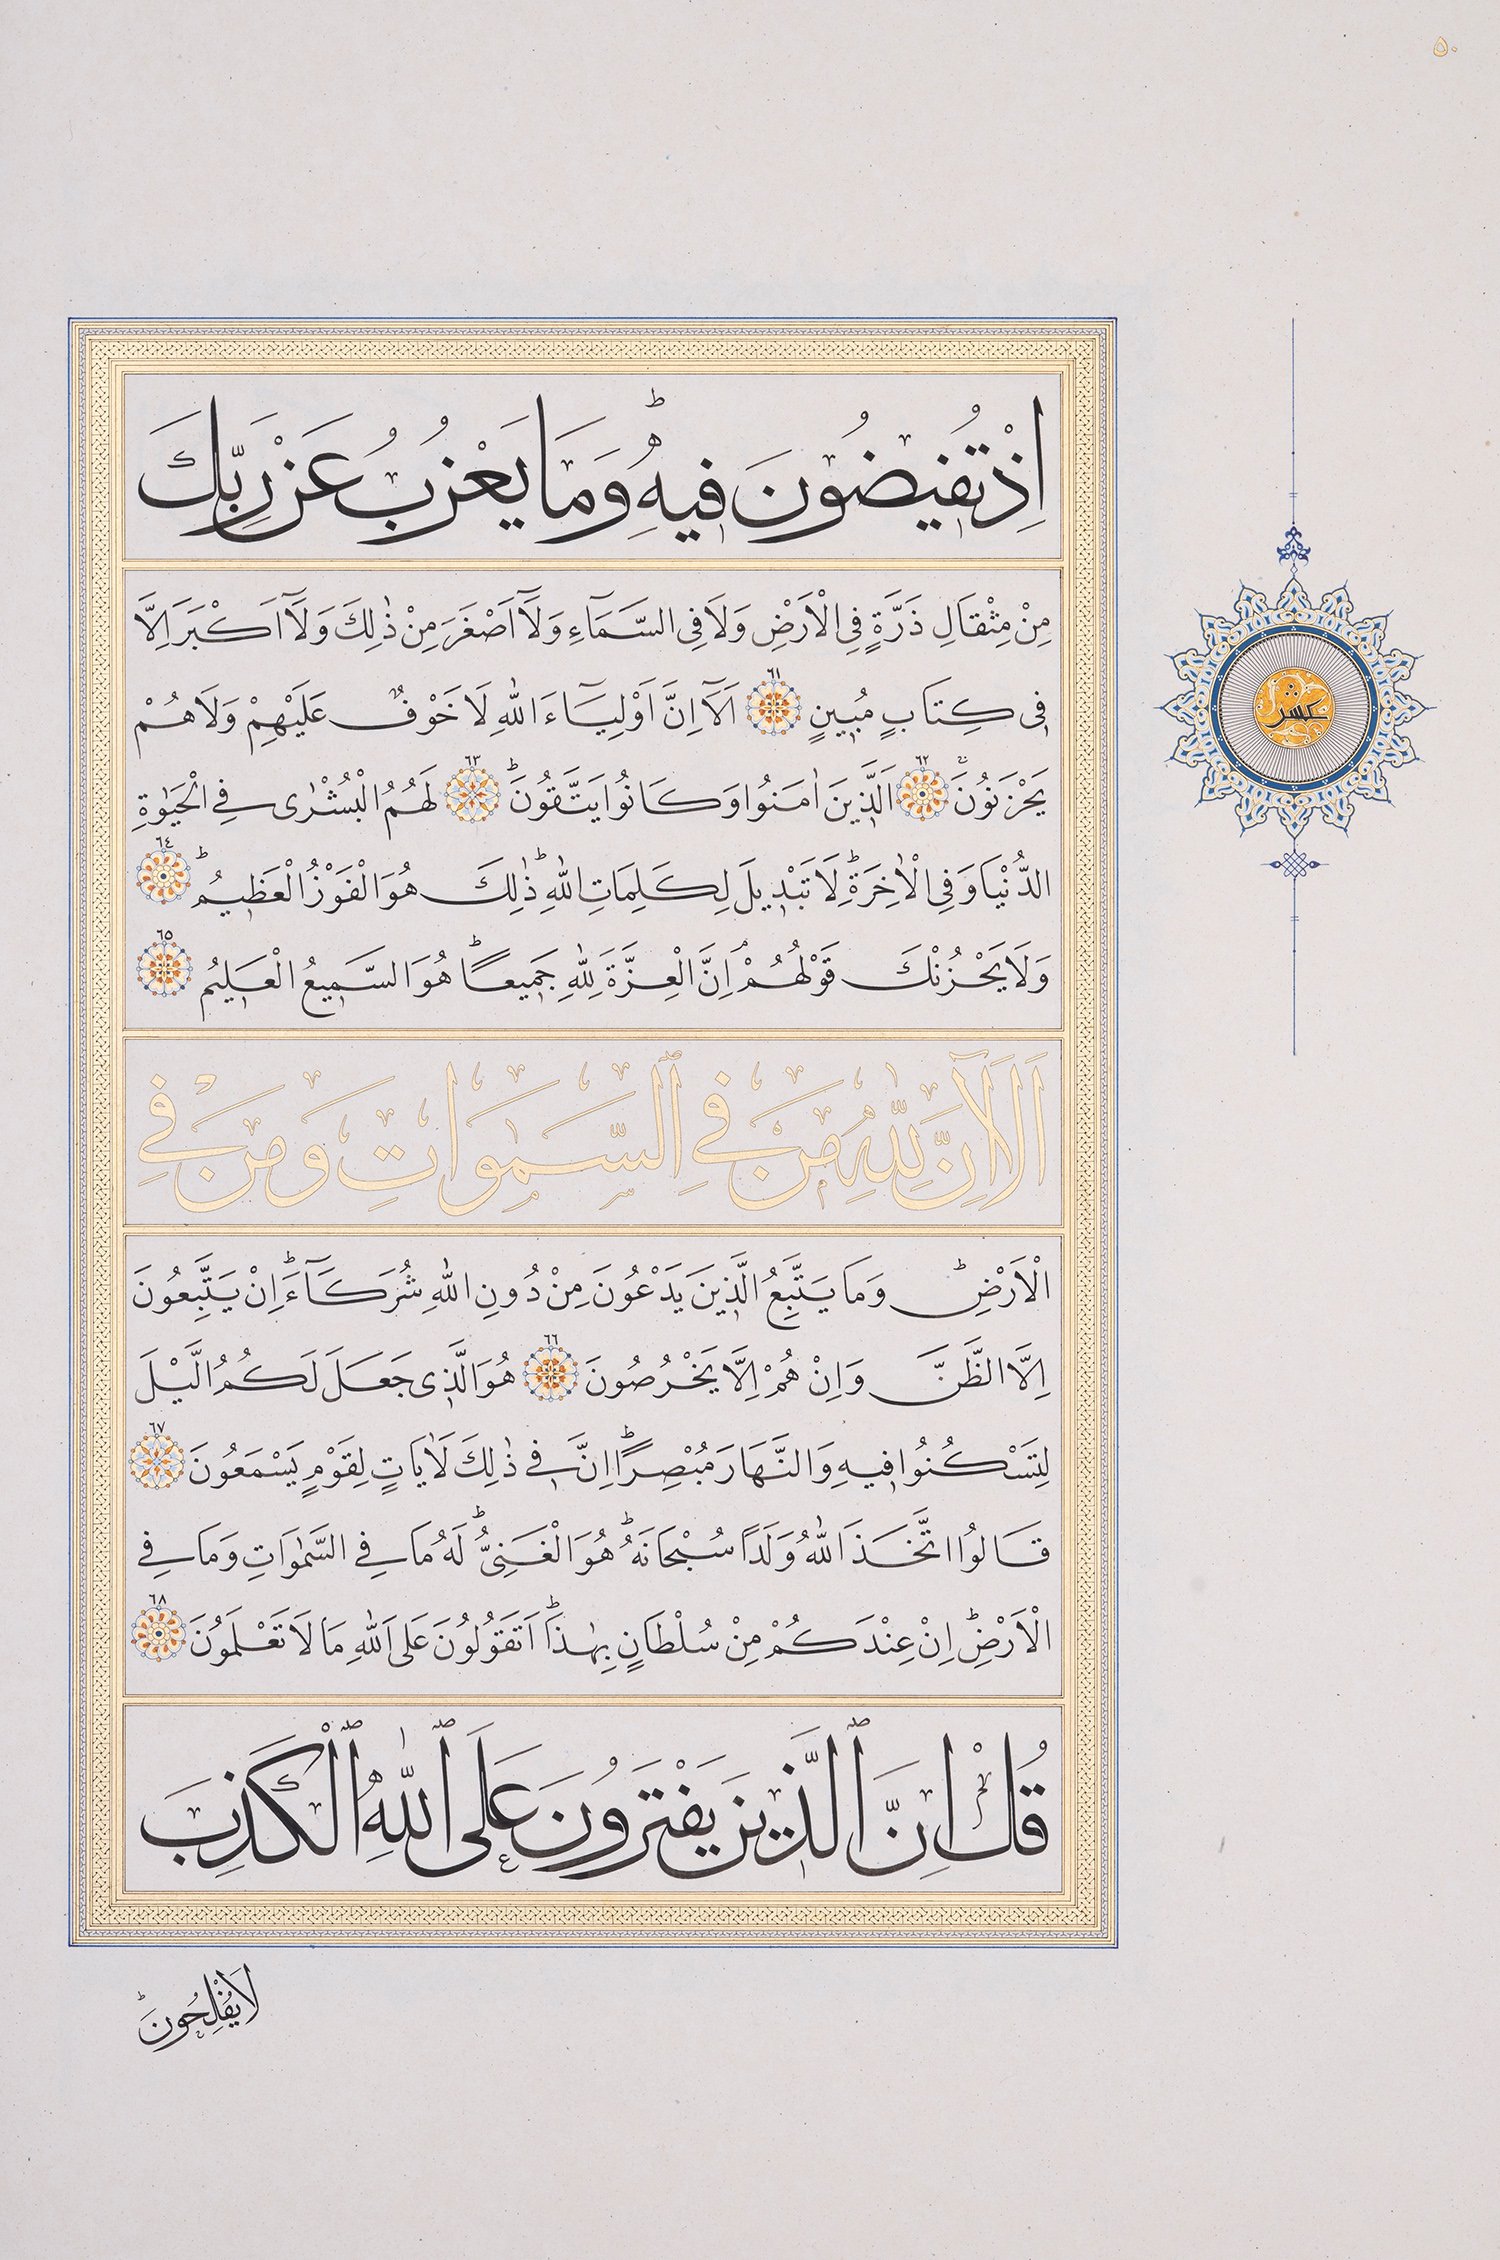 ٥٠
اِذْ تُفِيضُونَ فِيهِ وَمَا يَعْزُبُ عَنْ رَبِّكَ
مِنْ مِثْقَالِ ذَرَّةٍ فِي الْاَرْضِ وَلَا فِي السَّمَآءِ وَلَآ اَصْغَرَ مِنْ ذٰلِكَ وَلَآ اَكْبَرَ اِلَّا
فِي كِتَابٍ مُبِينٍ ٦١ اَلَآ اِنَّ اَوْلِيَآءَ اللّٰهِ لَا خَوْفٌ عَلَيْهِمْ وَلَا هُمْ
يَحْزَنُونَ ٦٢ اَلَّذِينَ اٰمَنُوا وَكَانُوا يَتَّقُونَۜ ٦٣ لَهُمُ الْبُشْرٰى فِي الْحَيٰوةِ
الدُّنْيَا وَفِي الْاٰخِرَةِۜ لَا تَبْدِيلَ لِكَلِمَاتِ اللّٰهِۜ ذٰلِكَ هُوَ الْفَوْزُ الْعَظِيمُۜ ٦٤
وَلَا يَحْزُنْكَ قَوْلُهُمْۢ اِنَّ الْعِزَّةَ لِلّٰهِ جَمِيعًاۜ هُوَ السَّمِيعُ الْعَلِيمُ ٦٥
اَلَآ اِنَّ لِلّٰهِ مَنْ فِي ٱلسَّمٰوَاتِ وَمَنْ فِي
الْاَرْضِۜ وَمَا يَتَّبِعُ الَّذِينَ يَدْعُونَ مِنْ دُونِ اللّٰهِ شُرَكَآءَۜ اِنْ يَتَّبِعُونَ
اِلَّا الظَّنَّ وَاِنْ هُمْ اِلَّا يَخْرُصُونَ ٦٦ هُوَ الَّذِي جَعَلَ لَكُمُ الَّيْلَ
لِتَسْكُنُوا فِيهِ وَالنَّهَارَ مُبْصِرًاۜ اِنَّ فِي ذٰلِكَ لَاٰيَاتٍ لِقَوْمٍ يَسْمَعُونَ ٦٧
قَالُوا اتَّخَذَ اللّٰهُ وَلَدًا سُبْحَانَهُۜ هُوَ الْغَنِيُّۜ لَهُ مَا فِي السَّمٰوَاتِ وَمَا فِي
الْاَرْضِۜ اِنْ عِنْدَكُمْ مِنْ سُلْطَانٍ بِهٰذَاۜ اَتَقُولُونَ عَلَى اللّٰهِ مَا لَا تَعْلَمُونَ ٦٨
قُلْ اِنَّ ٱلَّذِينَ يَفْتَرُونَ عَلَى ٱللّٰهِ ٱلْكَذِبَ
لَا يُفْلِحُونَۜ
عشر